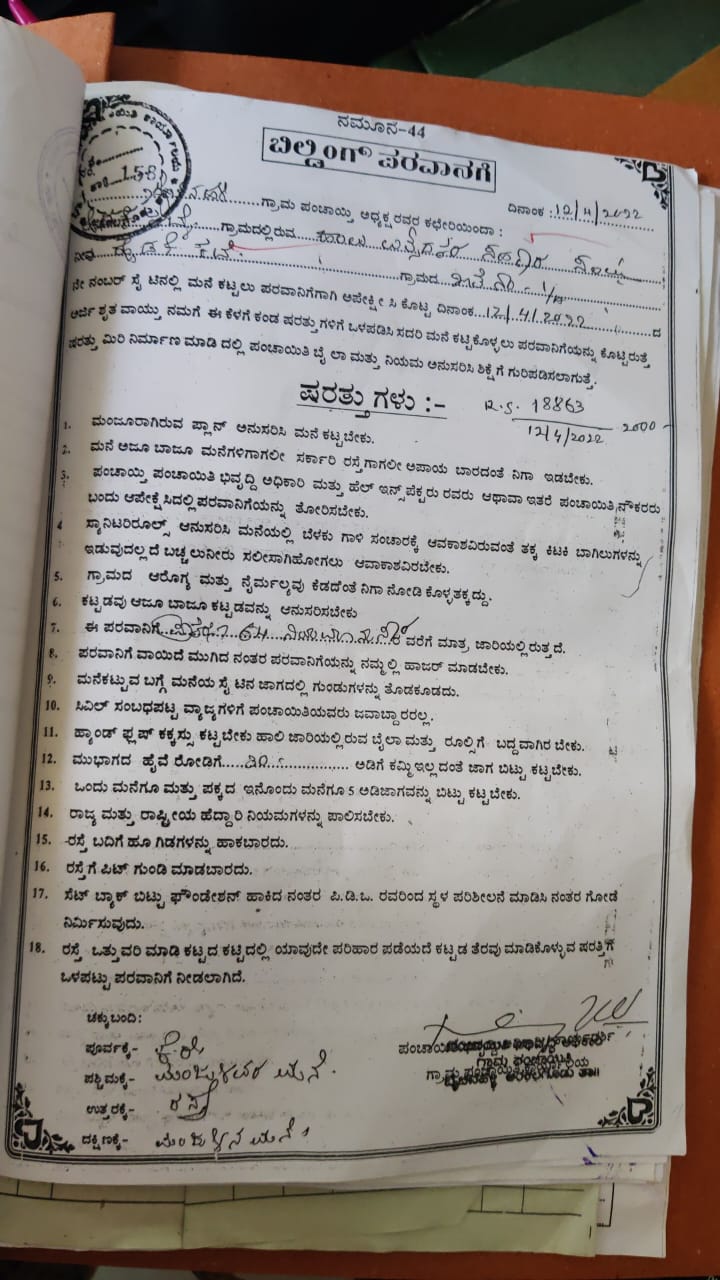 ನಮೂನ-44
ಬಿಲ್ಡಿಂಗ್ ಪರವಾನಗಿ
158
ಗ್ರಾಮ ಪಂಚಾಯ್ತಿ ಅಧ್ಯಕ್ಷರವರ ಕಛೇರಿಯಿಂದಾ : ದಿನಾಂಕ : 12/4/2022
ಗ್ರಾಮದಲ್ಲಿರುವ
ನೀವು ಗ್ರಾಮದ
ನೇ ನಂಬರ್ ಸೈಟಿನಲ್ಲಿ ಮನೆ ಕಟ್ಟಲು ಪರವಾನಿಗೆಗಾಗಿ ಅಪೇಕ್ಷೀಸಿ ಕೊಟ್ಟ ದಿನಾಂಕ 12/4/2022 ದ
ಅರ್ಜಿ ಶೃತವಾಯ್ತು ನಮಗೆ ಈ ಕೆಳಗೆ ಕಂಡ ಷರತ್ತುಗಳಿಗೆ ಒಳಪಡಿಸಿ ಸದರಿ ಮನೆ ಕಟ್ಟಿಕೊಳ್ಳಲು ಪರವಾನಿಗೆಯನ್ನು ಕೊಟ್ಟಿರುತ್ತೆ
ಷರತ್ತು ಮಿರಿ ನಿರ್ಮಾಣ ಮಾಡಿದಲ್ಲಿ ಪಂಚಾಯಿತಿ ಬೈಲಾ ಮತ್ತು ನಿಯಮ ಅನುಸರಿಸಿ ಶಿಕ್ಷೆಗೆ ಗುರಿಪಡಿಸಲಾಗುತ್ತೆ.
ಷರತ್ತುಗಳು :-
R.S. 18863 2000
12/4/2022
1. ಮಂಜೂರಾಗಿರುವ ಪ್ಲಾನ್ ಅನುಸರಿಸಿ ಮನೆ ಕಟ್ಟಬೇಕು.
2. ಮನೆ ಅಜೂ ಬಾಜೂ ಮನೆಗಳಿಗಾಗಲೀ ಸರ್ಕಾರಿ ರಸ್ತೆಗಾಗಲೀ ಅಪಾಯ ಬಾರದಂತೆ ನಿಗಾ ಇಡಬೇಕು.
3. ಪಂಚಾಯ್ತಿ ಪಂಚಾಯಿತಿ ಭಿವೃದ್ದಿ ಅಧಿಕಾರಿ ಮತ್ತು ಹೆಲ್ ಇನ್ಸ್‌ಪೆಕ್ಟರು ರವರು ಆಥಾವಾ ಇತರೆ ಪಂಚಾಯಿತಿ ನೌಕರರು
ಬಂದು ಆಪೇಕ್ಷಿಸಿದಲ್ಲಿ ಪರವಾನಿಗೆಯನ್ನು ತೋರಿಸಬೇಕು.
4 ಸ್ಯಾನಿಟರಿರೂಲ್ಸ್ ಆನುಸರಿಸಿ ಮನೆಯಲ್ಲಿ ಬೆಳಕು ಗಾಳಿ ಸಂಚಾರಕ್ಕೆ ಆವಕಾಶವಿರುವಂತೆ ತಕ್ಕ ಕಿಟಕಿ ಬಾಗಿಲುಗಳನ್ನು
ಇಡುವುದಲ್ಲದೆ ಬಚ್ಚಲುನೀರು ಸಲೀಸಾಗಿಹೋಗಲು ಆವಾಕಾಶವಿರಬೇಕು.
5. ಗ್ರಾಮದ ಆರೊಗ್ಯ ಮತ್ತು ನೈರ್ಮಲ್ಯವು ಕೆಡದಂತೆ ನಿಗಾ ನೋಡಿ ಕೊಳ್ಳತಕ್ಕದ್ದು.
6. ಕಟ್ಟಡವು ಆಜೂ ಬಾಜೂ ಕಟ್ಟಡವನ್ನು ಆನುಸರಿಸಬೇಕು
7. ಈ ಪರವಾನಿಗೆ ವರೆಗೆ ಮಾತ್ರ ಜಾರಿಯಲ್ಲಿರುತ್ತದೆ.
8. ಪರವಾನಿಗೆ ವಾಯಿದೆ ಮುಗಿದ ನಂತರ ಪರವಾನಿಗೆಯನ್ನು ನಮ್ಮಲ್ಲಿ ಹಾಜರ್ ಮಾಡಬೇಕು.
9. ಮನೆಕಟ್ಟುವ ಬಗ್ಗೆ ಮನೆಯ ಸೈಟಿನ ಜಾಗದಲ್ಲಿ ಗುಂಡುಗಳನ್ನು ತೊಡಕೂಡದು.
10. ಸಿವಿಲ್ ಸಂಬಧಪಟ್ಟ ವ್ಯಾಜ್ಯಗಳಿಗೆ ಪಂಚಾಯಿತಿಯವರು ಜವಾಬ್ದಾರರಲ್ಲ.
11. ಹ್ಯಾಂಡ್ ಫ್ಲಷ್ ಕಕ್ಕಸ್ಸು ಕಟ್ಟಬೇಕು ಹಾಲಿ ಜಾರಿಯಲ್ಲಿರುವ ಬೈಲಾ ಮತ್ತು ರೂಲ್ಸಿಗೆ ಬದ್ದವಾಗಿರ ಬೇಕು.
12. ಮುಭಾಗದ ಹೈವೆ ರೋಡಿಗೆ ಅಡಿಗೆ ಕಮ್ಮಿ ಇಲ್ಲದಂತೆ ಜಾಗ ಬಿಟ್ಟು ಕಟ್ಟಬೇಕು.
13. ಒಂದು ಮನೆಗೂ ಮತ್ತು ಪಕ್ಕದ ಇನೊಂದು ಮನೆಗೂ 5 ಅಡಿಜಾಗವನ್ನು ಬಿಟ್ಟು ಕಟ್ಟಬೇಕು.
14. ರಾಜ್ಯ ಮತ್ತು ರಾಷ್ಟ್ರೀಯ ಹೆದ್ದಾರಿ ನಿಯಮಗಳನ್ನು ಪಾಲಿಸಬೇಕು.
15. ರಸ್ತೆ ಬದಿಗೆ ಹೂ ಗಿಡಗಳನ್ನು ಹಾಕಬಾರದು.
16. ರಸ್ತೆಗೆ ಪಿಟ್ ಗುಂಡಿ ಮಾಡಬಾರದು.
17. ಸೆಟ್ ಬ್ಯಾಕ್ ಬಿಟ್ಟು ಫೌಂಡೇಶನ್ ಹಾಕಿದ ನಂತರ ಪಿ.ಡಿ.ಒ. ರವರಿಂದ ಸ್ಥಳ ಪರಿಶೀಲನೆ ಮಾಡಿಸಿ ನಂತರ ಗೋಡೆ
ನಿರ್ಮಿಸುವುದು.
18. ರಸ್ತೆ ಒತ್ತುವರಿ ಮಾಡಿ ಕಟ್ಟದ ಕಟ್ಟಿದಲ್ಲಿ ಯಾವುದೇ ಪರಿಹಾರ ಪಡೆಯದೆ ಕಟ್ಟಡ ತೆರವು ಮಾಡಿಕೊಳ್ಳುವ ಷರತ್ತಿಗೆ
ಒಳಪಟ್ಟು ಪರವಾನಿಗೆ ನೀಡಲಾಗಿದೆ.
ಚಕ್ಕುಬಂದಿ:
ಪೂರ್ವಕ್ಕೆ-
ಪಶ್ಚಿಮಕ್ಕೆ- ಮನೆ.
ಉತ್ತರಕ್ಕೆ- ರಸ್ತೆ
ದಕ್ಷಿಣಕ್ಕೆ- ಮನೆ
ಗ್ರಾಮ ಪಂಚಾಯಿತಿ